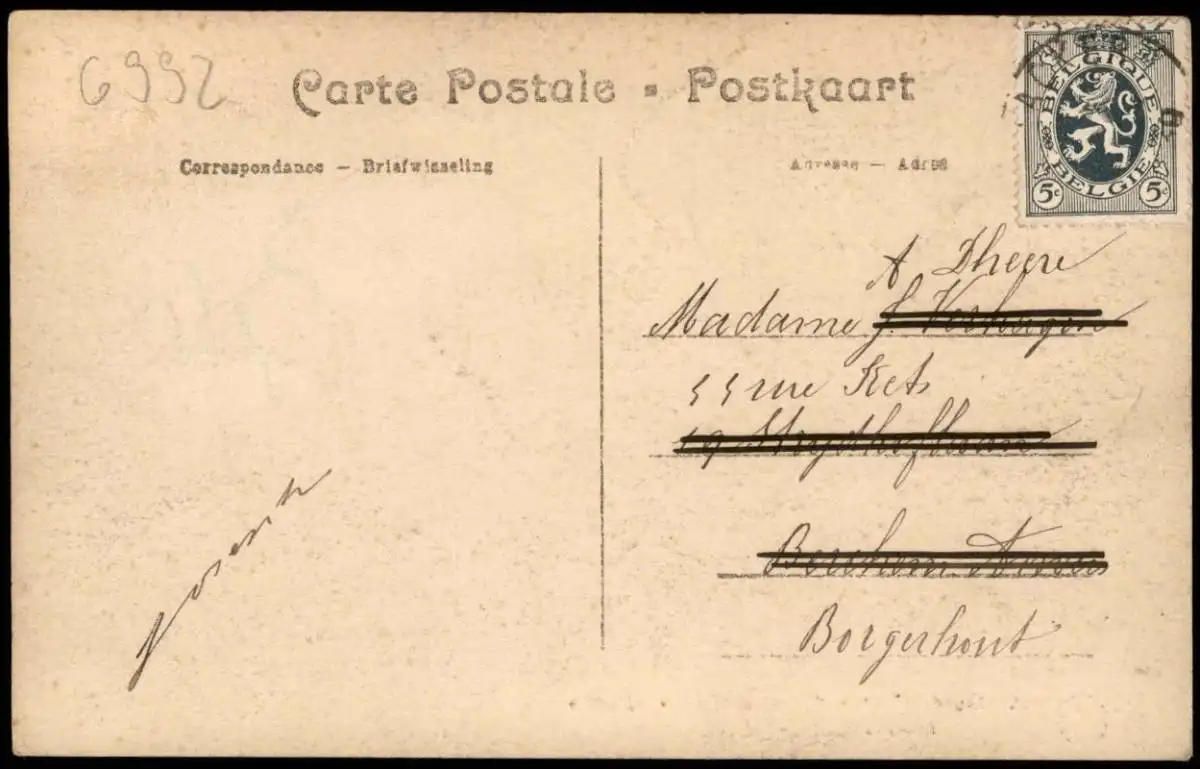 6992
Carte Postale - Postkaart
Correspondance — Briefwisseling
Adresse — Adres
BELGIQUE
BELGIE
5c 5c
A Dheere
Madame J. Verhagen
55 rue Kets
19 Strydhoflaan
Berchem Anvers
Borgerhout